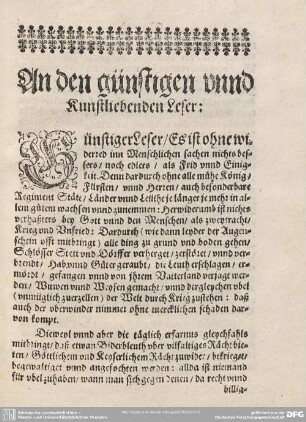 An den günstigen vnnd
Kunstliebenden Leser:
Günstiger Leser/ Es ist ohne wi-
derred inn Menschlichen sachen nichts bes-
sers/ noch edlers/ als Frid vnnd Einig-
keit. Denn dardurch ohne alle mühe König/
Fürsten/ vnnd Herren/ auch besonderbare
Regiment Stätt/ Länder vnnd Leüth je länger je mehr in al-
lem gůtem wachsen vnnd zunemmen: Herwiderumb ist nichts
verhaßters bey Gott vnnd den Menschen/ als zweytracht/
Krieg vnd Vnfrid: Dardurch (wie dann leyder der Augen-
schein offt mitbringt) alle ding zu grund vnd boden gehen/
Schlösser Stett vnd Dörffer verhergt/ zerstört/ vnnd ver-
brendt/ Hab vnnd Güter geraubt/ die Leuth erschlagen/ er-
mördt/ gefangen vnnd von jhrem Vatterland verjagt wer-
den/ Wittwen vnnd Weysen gemacht/ vnnd dergleychen vbel
(vnmüglich zuerzellen) der Welt durch Krieg zustehen: daß
auch der vberwinder nimmer ohne mercklichen schaden dar-
von kompt.
Dieweyl vnnd aber die täglich erfarnuß gleychfahls
mitbringt/ daß etwan Biderbleuth vber vilfaltiges Rächtbie-
ten/ Göttlichem vnd Keyserlichem Rächt zuwider/ bekrieget/
begewaltiget vnnd angefochten werden: allda ist niemand
für vbel zuhaben/ wann man sich gegen denen/ da recht vnnd
billig-